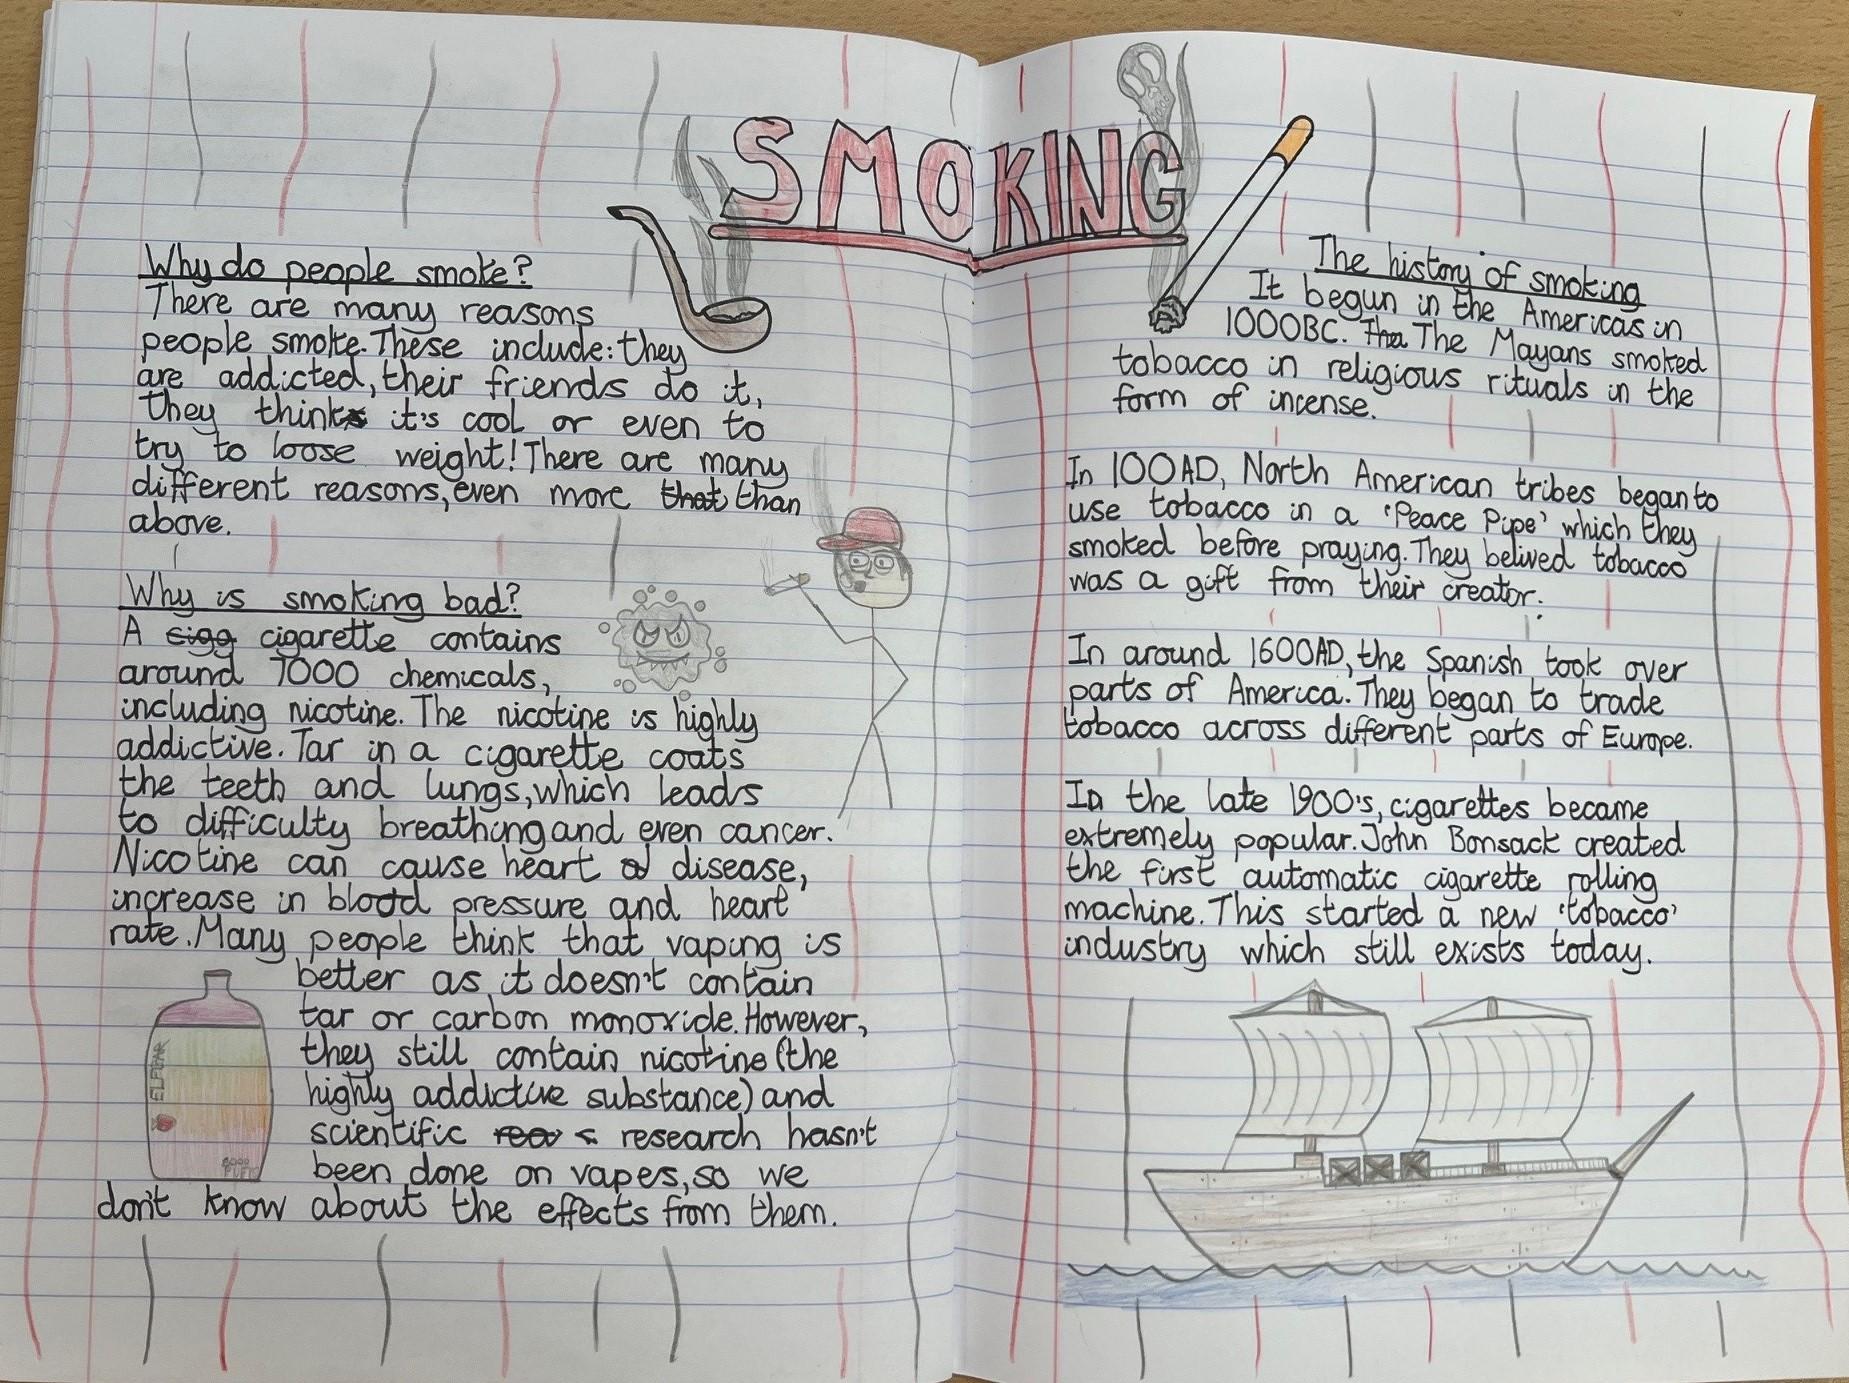 SMOKING
Why do people smoke?
There are many reasons
people smoke. These include: they
are addicted, their friends do it,
they think it's cool or even to
try to loose weight! There are many
different reasons, even more that than
above.
Why is smoking bad?
A cigg cigarette contains
around 7000 chemicals,
including nicotine. The nicotine is highly
addictive. Tar in a cigarette coats
the teeth and lungs, which leads
to difficulty breathing and even cancer.
Nicotine can cause heart disease,
increase in blood pressure and heart
rate. Many people think that vaping is
better as it doesn't contain
tar or carbon monoxide. However,
they still contain nicotine (the
highly addictive substance) and
scientific research hasn't
been done on vapes, so we
don't know about the effects from them.
ELFBAR
PUFFS
The history of smoking
It begun in the Americas in
1000BC. The The Mayans smoked
tobacco in religious rituals in the
form of incense.
In 100AD, North American tribes began to
use tobacco in a 'Peace Pipe' which they
smoked before praying. They belived tobacco
was a gift from their creator.
In around 1600AD, the Spanish took over
parts of America. They began to trade
tobacco across different parts of Europe.
In the late 1900's, cigarettes became
extremely popular. John Bonsack created
the first automatic cigarette rolling
machine. This started a new 'tobacco'
industry which still exists today.